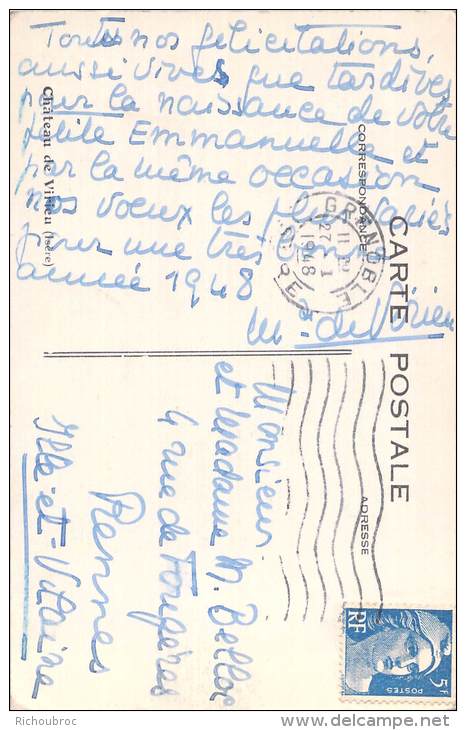 Toutes nos félicitations,
aussi vives que tardives
pour la naissance de votre
petite Emmanuelle, et
par la même occasion
nos voeux les plus variés
pour une très bonne
année 1948
Mse de Virieu
Château de Virieu (Isère)
CARTE POSTALE
CORRESPONDANCE
ADRESSE
GRENOBLE
27 1
1948
ISERE
Monsieur
et Madame M. Belloc
4 rue de Fougères
Rennes
Ille-et-Vilaine
RF
5F
POSTES
Richoubroc
www.delcampe.net